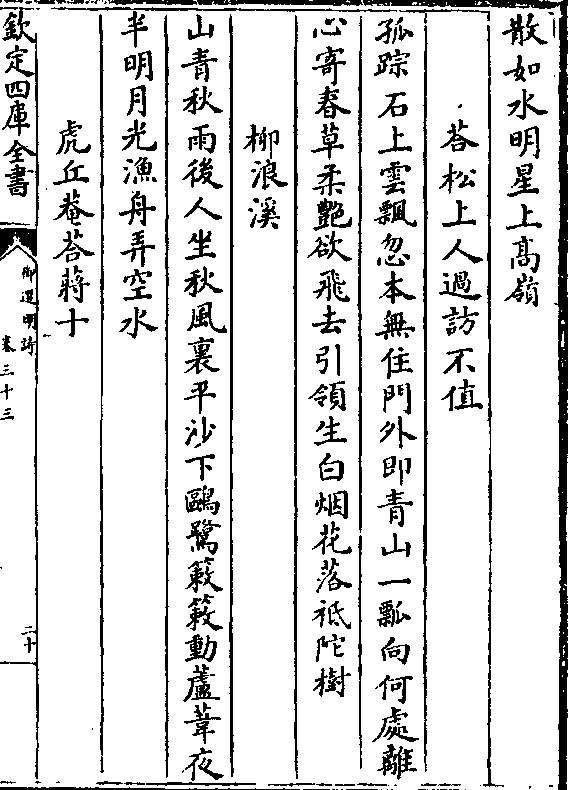 散如水明星上髙嶺
荅松上人過訪不值
孤踪石上雲飄忽本無住門外即青山一瓢向何處離
心寄春草柔艷欲飛去引領生白烟花落祗陀樹
柳浪溪
山青秋雨後人坐秋風裏平沙下鷗鷺簌簌動蘆葦夜
半明月光漁舟弄空水
虎丘菴荅蔣十
欽定四庫全書
御選明詩
卷三十三
二十